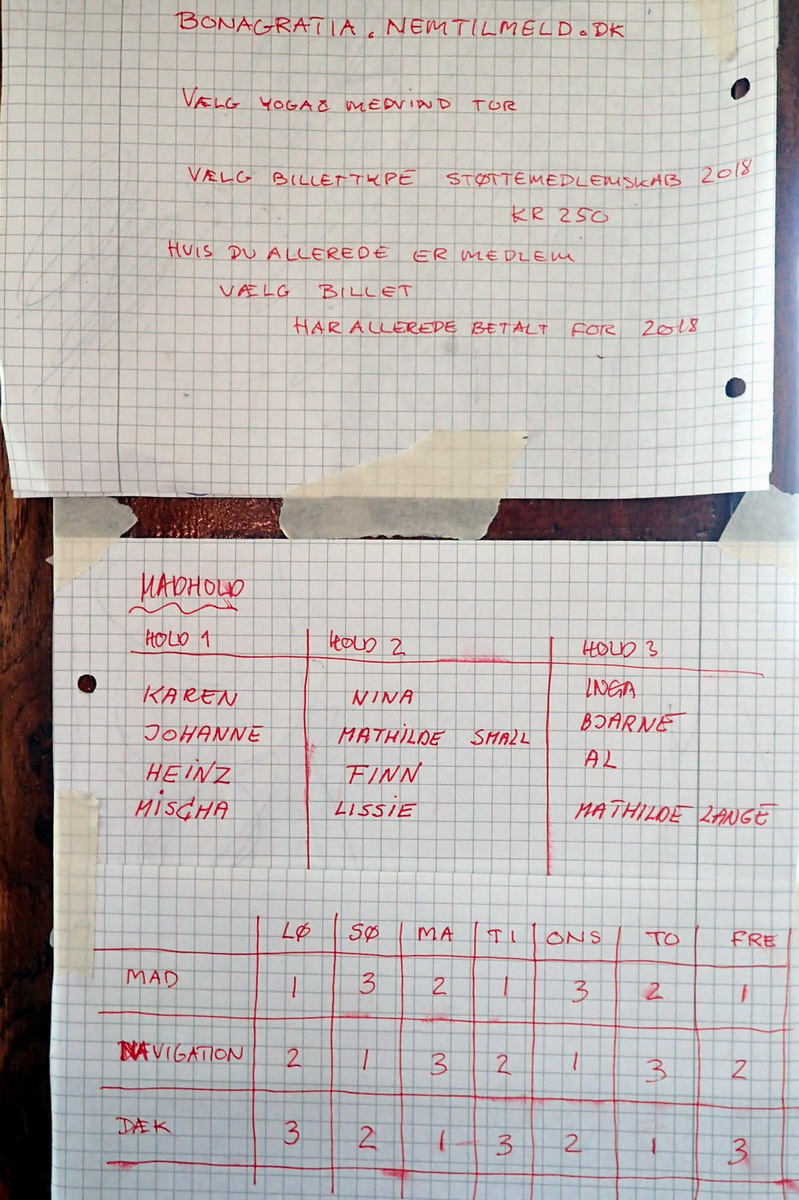 BONAGRATIA.NEMTILMELD.DK
VÆLG YOGA& MEDVIND TUR
VÆLG BILLETTYPE STØTTEMEDLEMSKAB 2018
KR 250
HVIS DU ALLEREDE ER MEDLEM
VÆLG BILLET
HAR ALLEREDE BETALT FOR 2018
MADHOLD
HOLD 1 HOLD 2 HOLD 3
KAREN NINA INGA
JOHANNE MATHILDE SMALL BJARNE
HEINZ FINN AL
MISCHA LISSIE MATHILDE LANGE
LØ SØ MA TI ONS TO FRE
MAD 1 3 2 1 3 2 1
NAVIGATION 2 1 3 2 1 3 2
DÆK 3 2 1 3 2 1 3